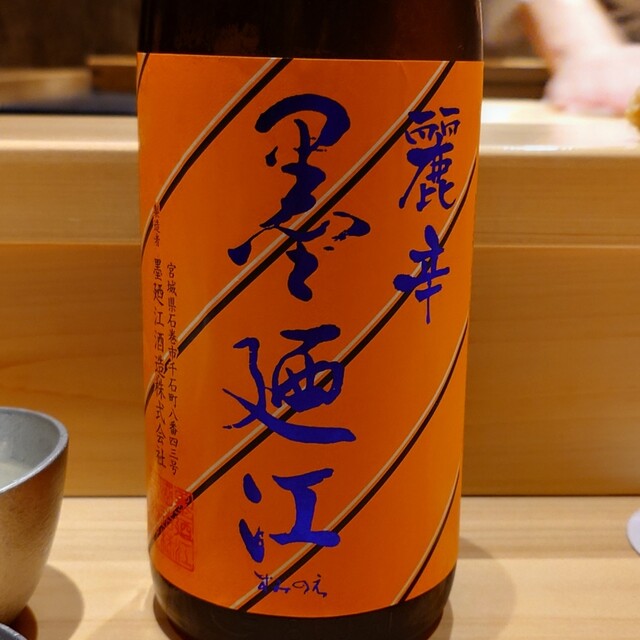 麗辛
墨廼江
すみのえ
宮城県石巻市千石町八番四三号
製造者 墨廼江酒造株式会社